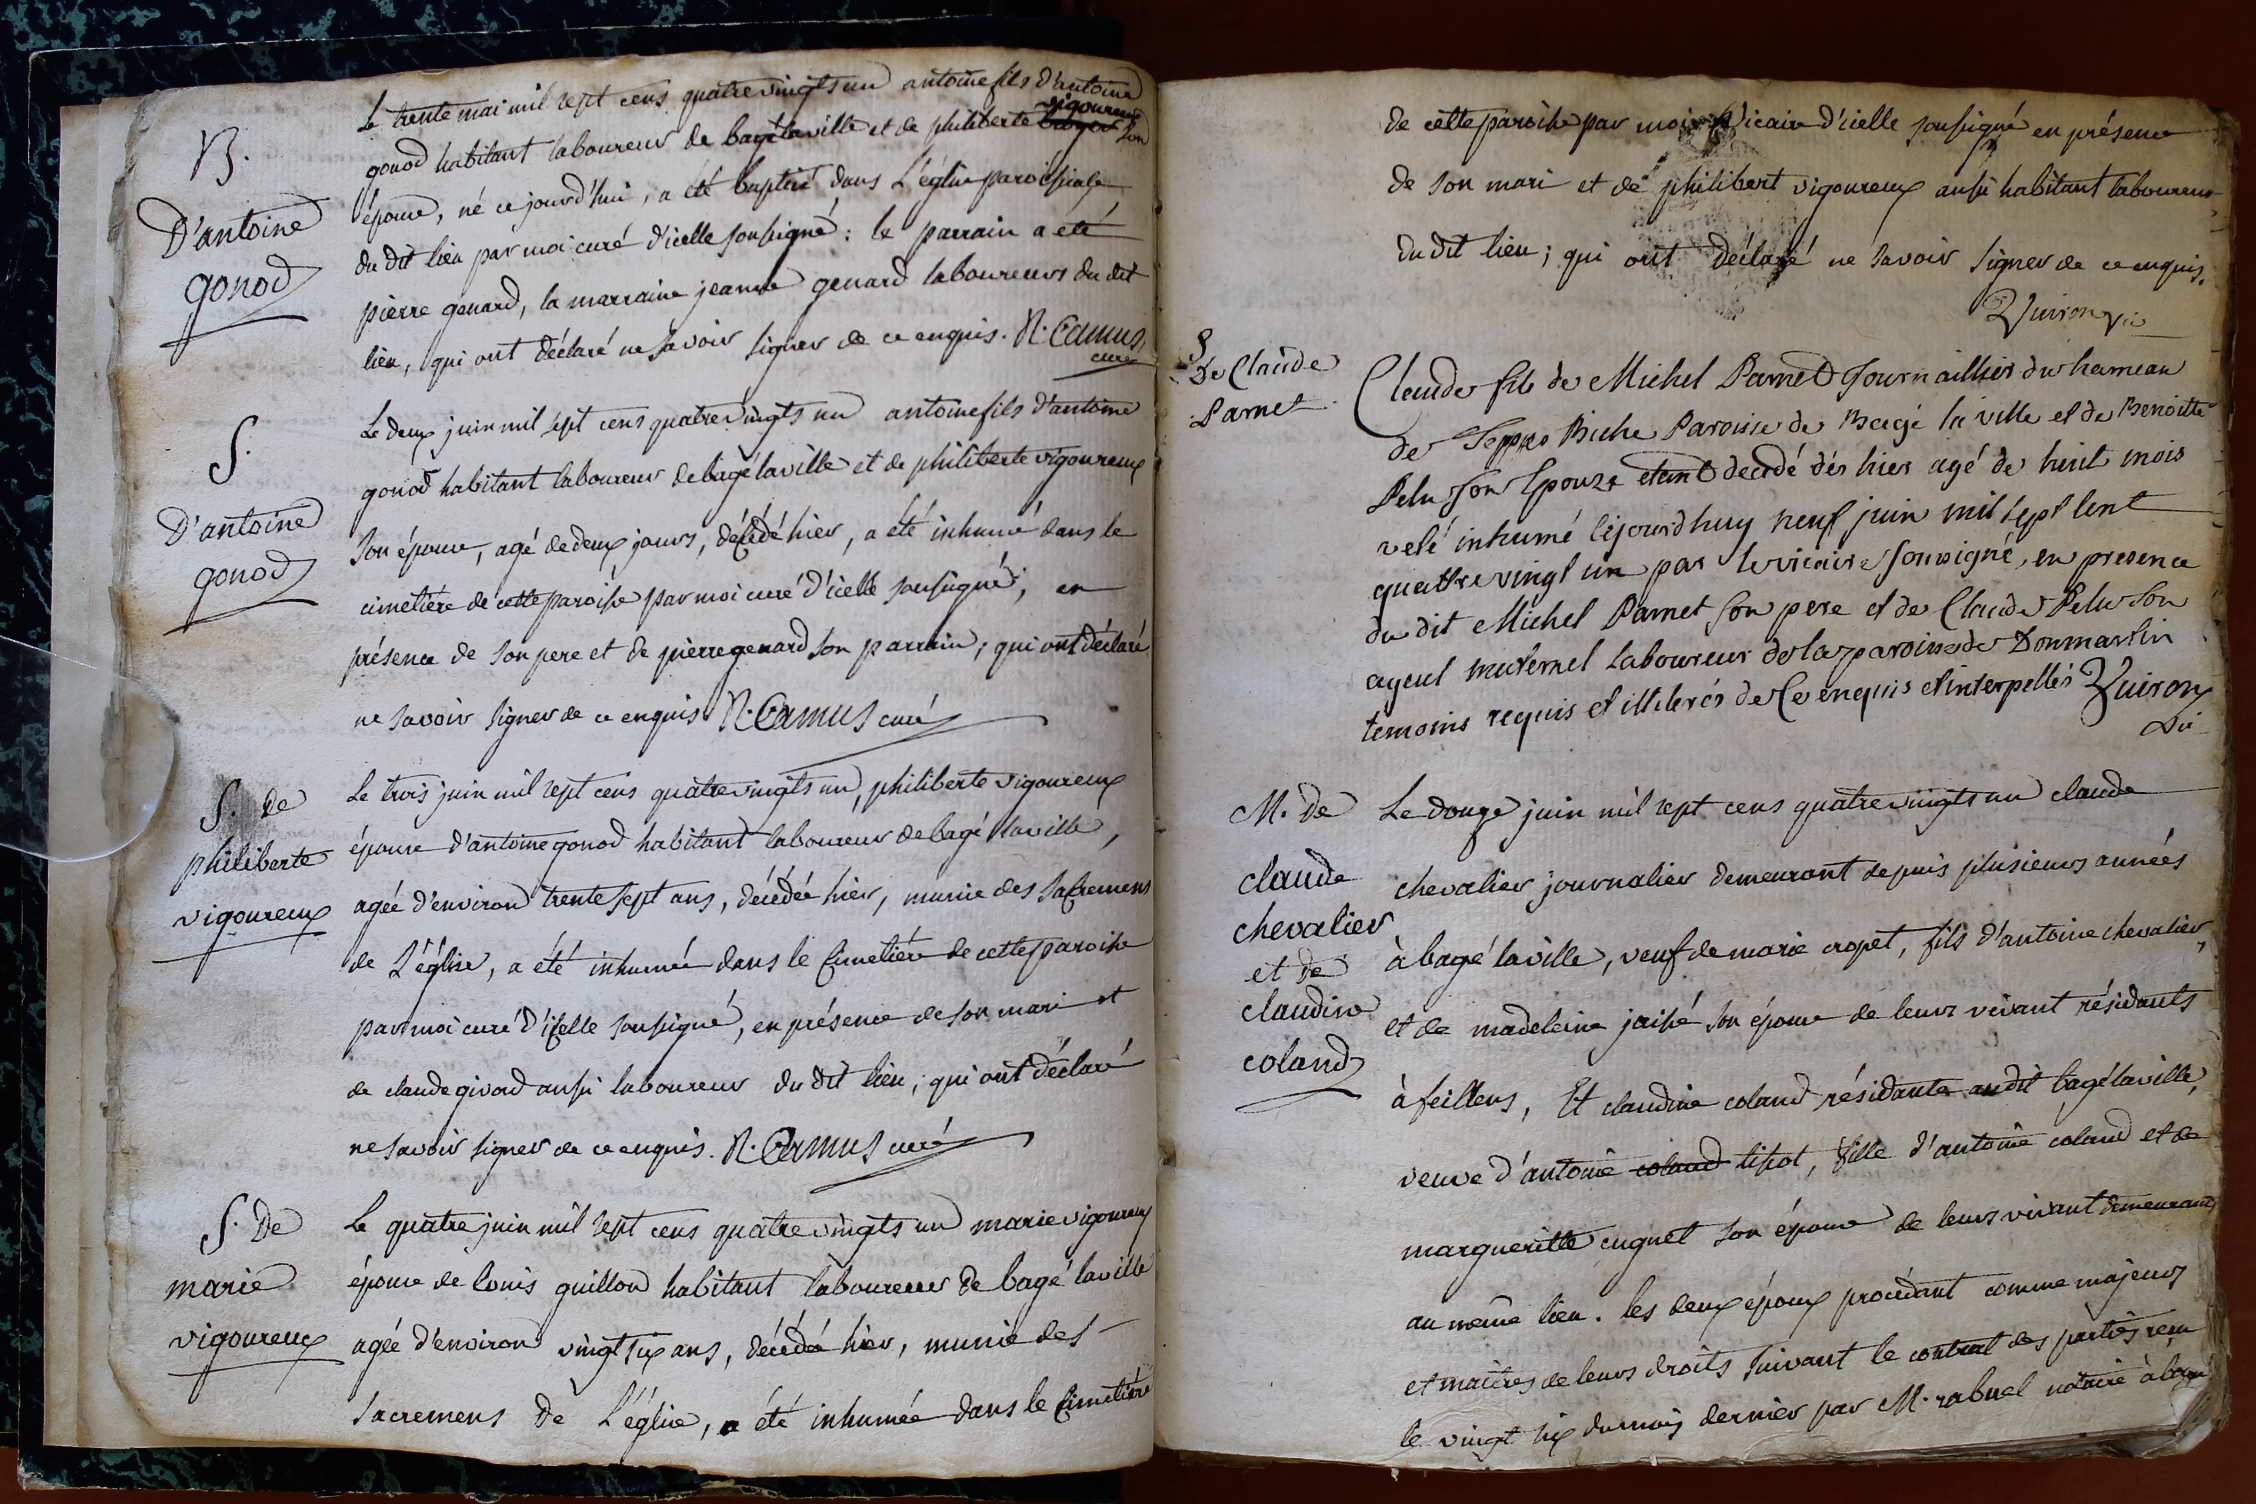 B.
D'antoine
gonod
Le trente mai mil sept cens quatre vingts un antoine fils d'antoine
gonod habitant laboureur de bagé la ville et de philiberte vigoureux son
épouse, né ce jourd'hui, a été baptisé dans L'église paroissiale
du dit lieu par moi curé d'icelle soussigné : le parrain a été
pierre genard, la marraine jeanne genard laboureurs du dit
lieu, qui ont déclaré ne savoir signer de ce enquis. N. Camus
curé
S.
D'antoine
gonod
Le deux juin mil sept cens quatre vingts un antoine fils d'antoine
gonod habitant laboureur de bagé la ville et de philiberte vigoureux
son épouse, agé de deux jours, décédé hier, a été inhumé dans le
cimetière de cette paroisse par moi curé d'icelle soussigné; en
présence de son pere et de pierre genard son parrain; qui ont déclaré
ne savoir signer de ce enquis N. Camus curé
S. de
philiberte
vigoureux
Le trois juin mil sept cens quatre vingts un, philiberte vigoureux
épouse d'antoine gonod habitant laboureur de bagé la ville,
agée d'environ trente sept ans, décédée hier, munie des sacremens
de L'église, a été inhumée dans le cimetière de cette paroisse
par moi curé d'icelle soussigné, en présence de son mari et
de claude givord aussi laboureur du dit lieu; qui ont déclaré
ne savoir signer de ce enquis. N. Camus curé
S. De
marie
vigoureux
Le quatre juin mil sept cens quatre vingts un marie vigoureux
épouse de louis guillon habitant laboureur de bagé la ville
agée d'environ vingt six ans, décédée hier, munie des
sacremens de L'église, a été inhumée dans le cimetière
de cette paroisse par moi Vicaire d'icelle soussigné en présence
de son mari et de philibert vigoureux aussi habitant laboureur
du dit lieu; qui ont déclaré ne savoir signer de ce enquis.
Vuiron vic
S
De Claude
Parnet
Claude fils de Michel Parnet Journaillier du hameau
de Biche Paroisse de Bagé la ville et de Benoitte
Pelu son Epouze etant decedé dés hier agé de huit mois
a eté inhumé cejourdhuy neuf juin mil sept cent
quattre vingt un par le vicaire sousigné, en presence
du dit Michel Parnet son pere et de Claude Pelu son
ayeul maternel Laboureur de la paroisse de Donmartin
temoins requis et illiterés de Ce enquis et interpellés Vuiron
vic
M. de
claude
chevalier
et de
claudine
coland
Le douze juin mil sept cens quatre vingts un claude
chevalier journalier demeurant depuis plusieurs années
à bagé la ville, veuf de marie cropet, fils d'antoine chevalier,
et de madeleine jaissé son épouse de leurs vivant résidants
à feillens, Et claudine coland résidante audit bagé la ville,
veuve d'antoine coland tissot, fille d'antoine coland et de
margueritte cuguet son épouse de leurs vivant demeurants
au même lieu. les deux époux procédant comme majeurs
et maîtres de leurs droits suivant le contrat des parties reçu
le vingt six du mois dernier par M. rabuel notaire à bagé